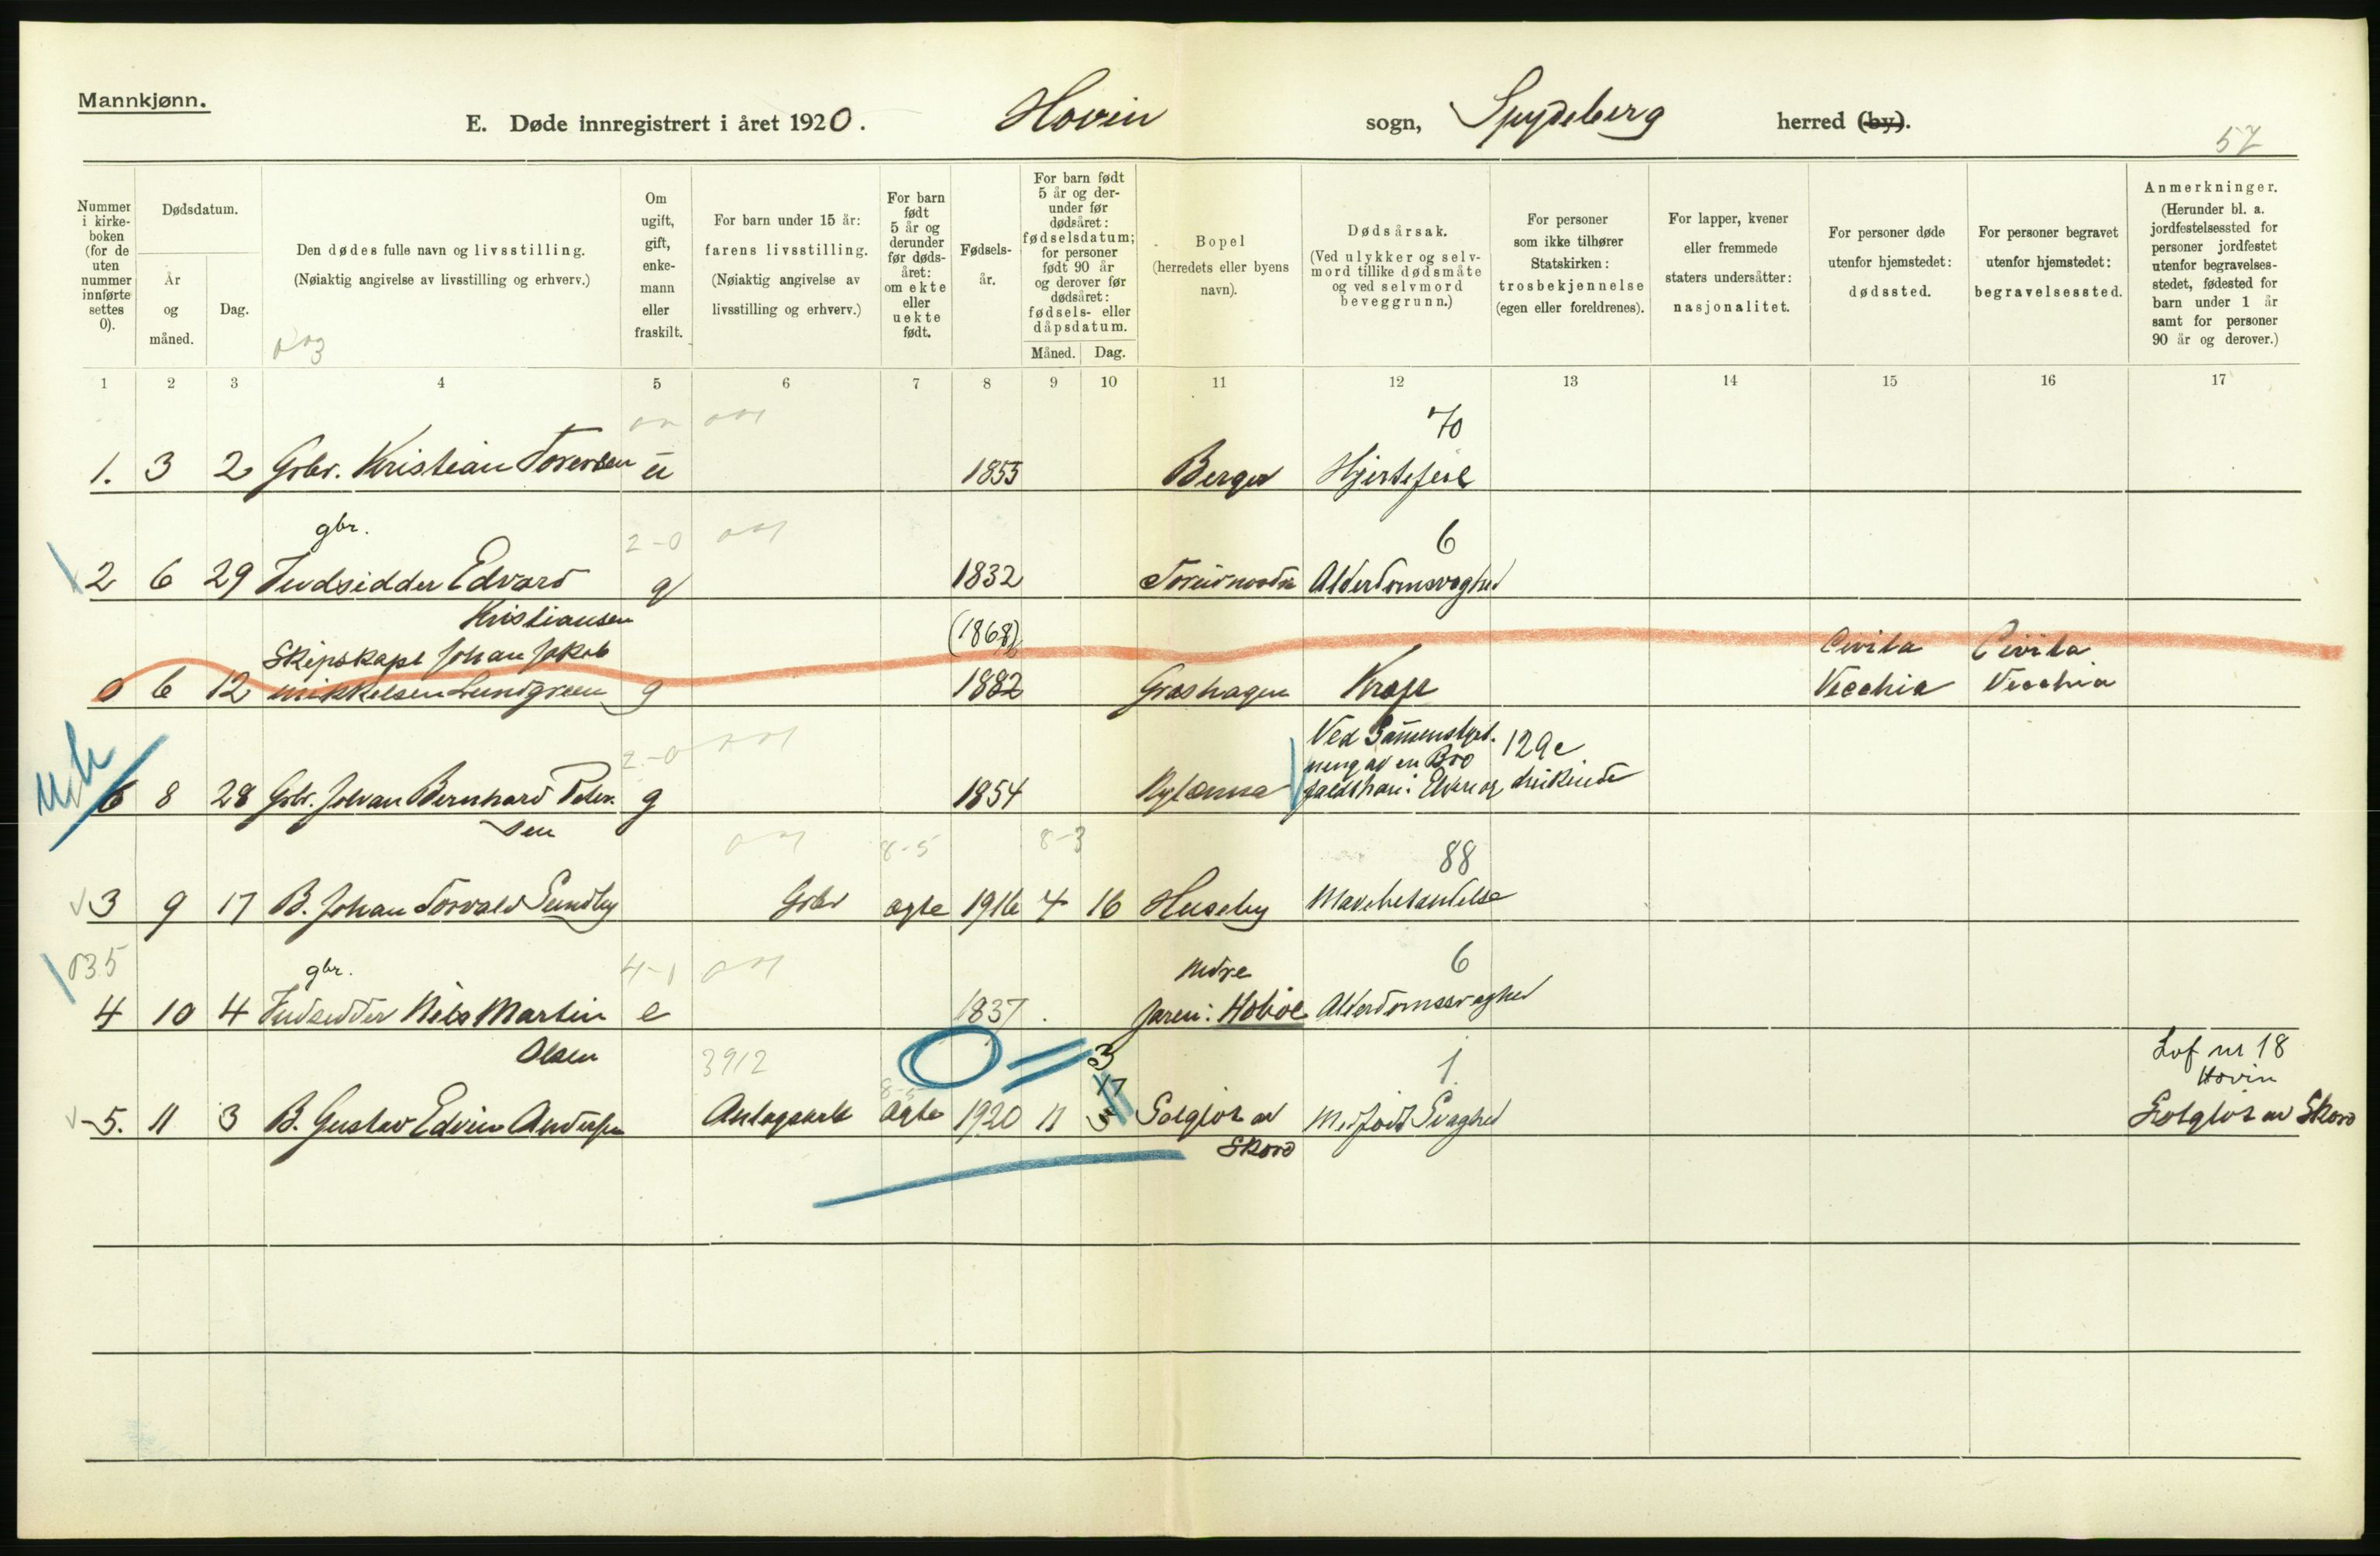 Mannkjønn.
E. Døde innregistrert i året 1920. Hovin sogn, Spydeberg herred (by).
57
Nummer i kirke-boken (for de uten nummer innførte settes 0).
Dødsdatum.
År og måned.
Dag.
Den dødes fulle navn og livsstilling.
(Nøiaktig angivelse av livsstilling og erhverv.)
Om ugift, gift, enke-mann eller fraskilt.
For barn under 15 år: farens livsstilling.
(Nøiaktig angivelse av livsstilling og erhverv.)
For barn født 5 år og derunder før døds-året: om ekte eller uekte født.
Fødsels-år.
For barn født 5 år og der-under før dødsåret: fødselsdatum; for personer født 90 år og derover før dødsåret: fødsels- eller dåpsdatum.
Måned. Dag.
Bopel (herredets eller byens navn).
Dødsårsak.
(Ved ulykker og selv-mord tillike dødsmåte og ved selvmord beveggrunn.)
For personer som ikke tilhører Statskirken: trosbekjennelse (egen eller foreldrenes).
For lapper, kvener eller fremmede staters undersåtter: nasjonalitet.
For personer døde utenfor hjemstedet: dødssted.
For personer begravet utenfor hjemstedet: begravelsessted.
Anmerkninger.
(Herunder bl. a. jordfestelsessted for personer jordfestet utenfor begravelses-stedet, fødested for barn under 1 år samt for personer 90 år og derover.)
1 2 3 4 5 6 7 8 9 10 11 12 13 14 15 16 17
70
1. 3 2 Gbr. Kristian Torersen u 1855 Berger Hjertefeil
gbr. 2-0 6
2 6 29 Indsidder Edvard g 1832 Alderdomsvaghed
Kristiansen (1868)
Skipskapt Johan Jakob Civita Civita
0 6 12 Mikkelsen Lundgreen g 1882 Græshagen Krope Vecchia Vecchia
2-0 Ved Sammenstyrt-
ning av en Bro 129c
6 8 28 Gbr. Johan Bernhard Peter- g 1854 faldt han i Elven og druknede
sen
8-5 8-3 88
3 9 17 B. Johan Torvald Sundby Gbr ægte 1916 4 16 Huseby Mavebetændelse
035 gbr. 4-1 Nedre 6
4 10 4 Indsidder Nils Martin e 1837 Jaren i Hobøl Alderdomssvaghed
Olsen 3912 3 1. Lof nr 18
17 Hovin
5. 11 3 B. Gustav Edvin Andersen Anlægsarb ægte 1920 11 3 Solgløt av Medfødt Svaghed Solgløt av Skoro
Skoro